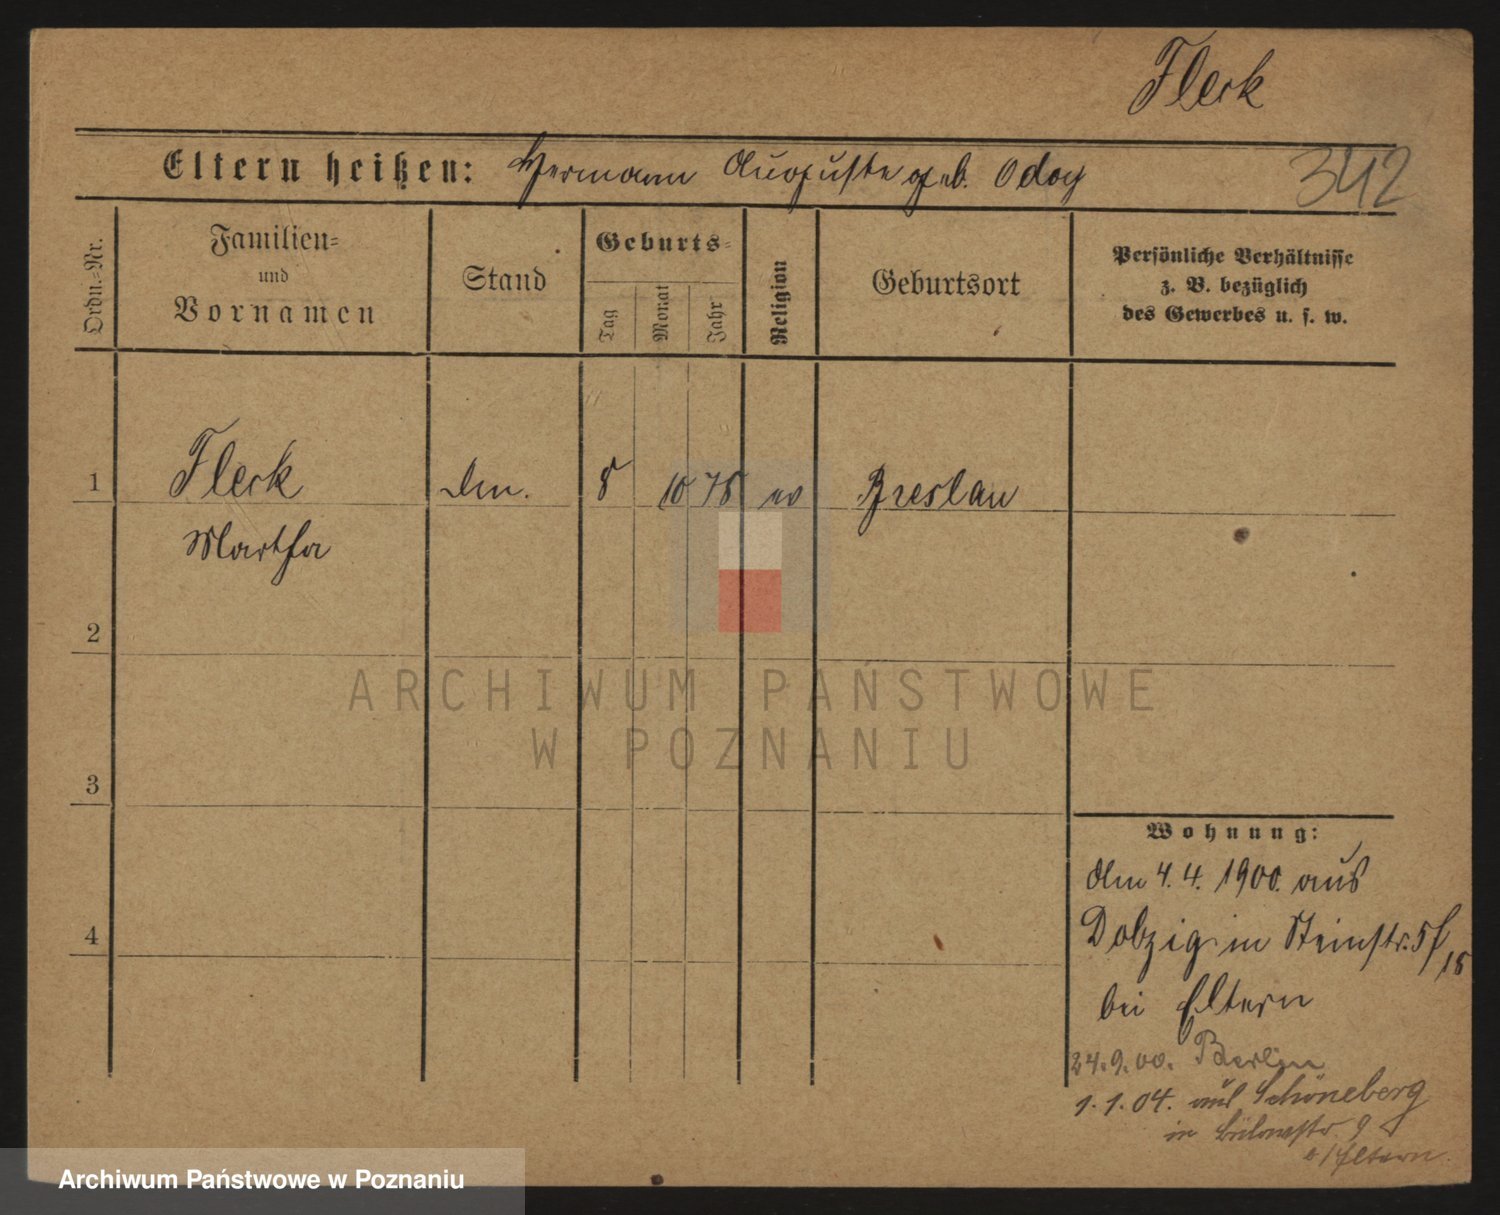 Fleck
Eltern heißen: Hermann Auguste geb. Odoy
342
Ordn.=Nr.
Familien=
und
Vornamen
Stand
Geburts=
Tag
Monat
Jahr
Religion
Geburtsort
Persönliche Verhältnisse
z. B. bezüglich
des Gewerbes u. s. w.
1 Fleck 8 10 78 ev Breslau
Martha
2
3
4
Wohnung:
4. 4. 1900. aus
Dolzig in Steinstr. 5
bei Eltern
24. 9. 00. Berlin
1. 1. 04. aus Schöneberg
in Bülowstr. 9
Eltern
ARCHIWUM PAŃSTWOWE
W POZNANIU
Archiwum Państwowe w Poznaniu